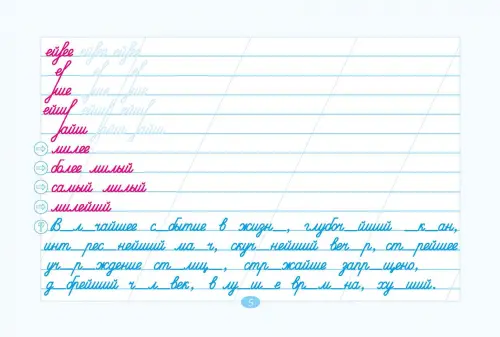 ейвее ейвее ейве
ев ев ев
уше уше уше
ейшв ейшв ейшв
уайш уайш уайш
милее
более милый
самый милый
милейший
В_л_чайшее с_бытие в жизн_, глубоч_йший _к_ан,
инт_рес_нейший ма_ч, скуч_нейший веч_р, ст_рейшее
уч_р_ждение ст_лиц_, стр_жайше запр_щено,
д_брейший ч_л_век, в лу_ш_е вр_м_на, ху_ший.
5